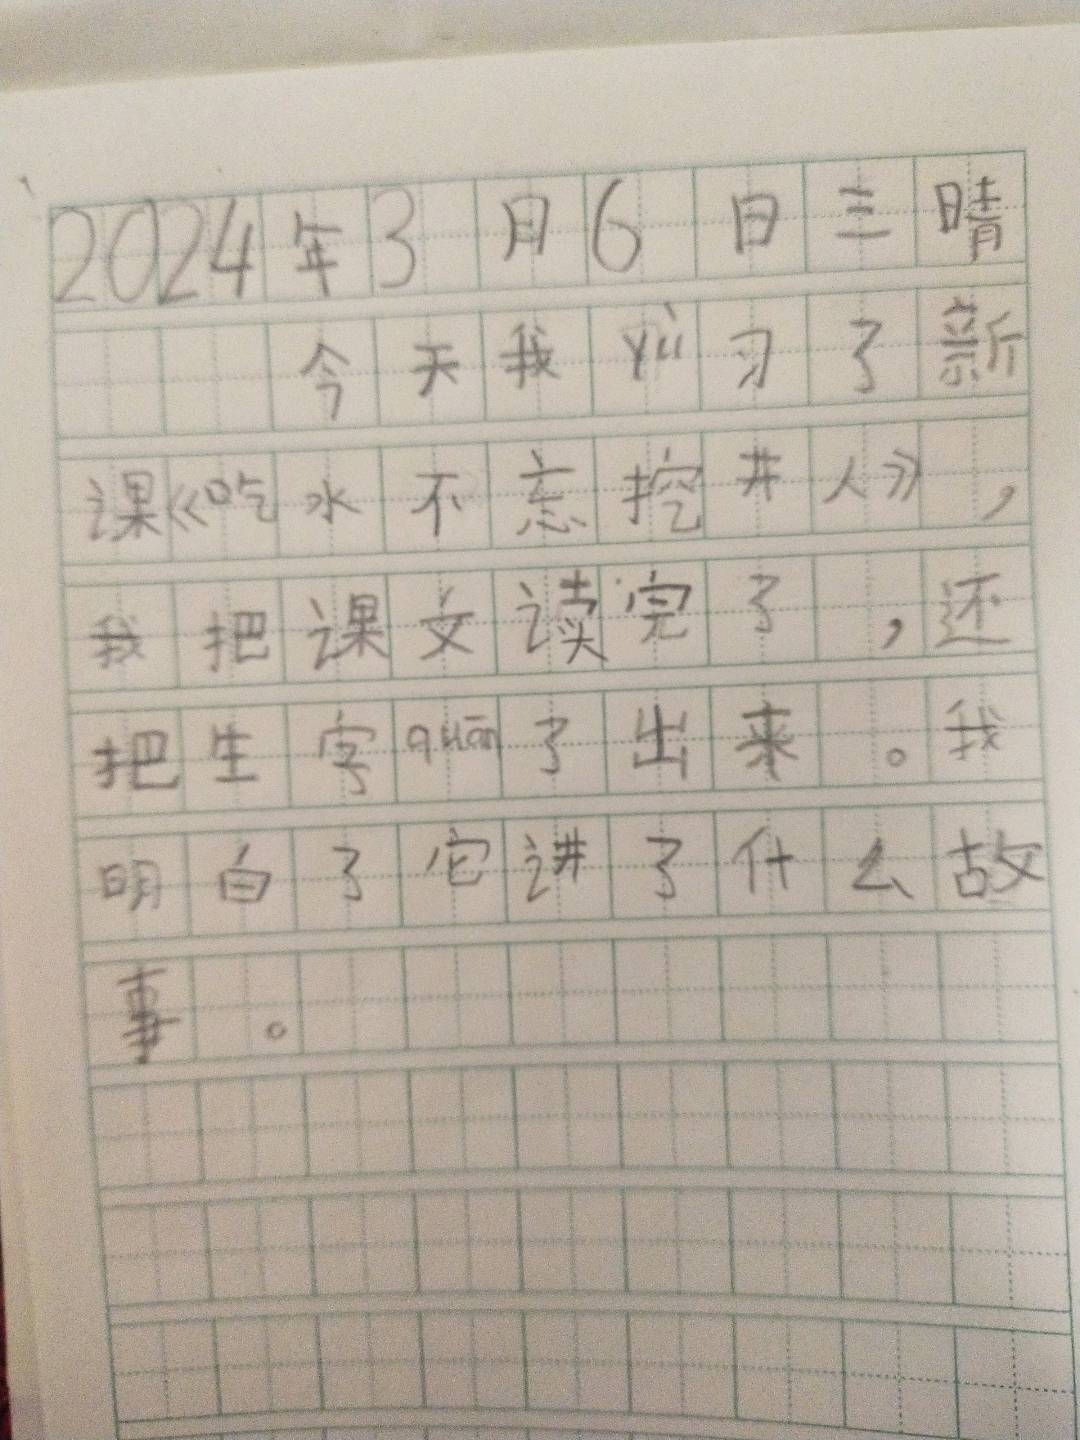 2024年3月6日三晴
今天我yù习了新
课《吃水不忘挖井人》，
我把课文读完了，还
把生字quān了出来。我
明白了它讲了什么故
事。